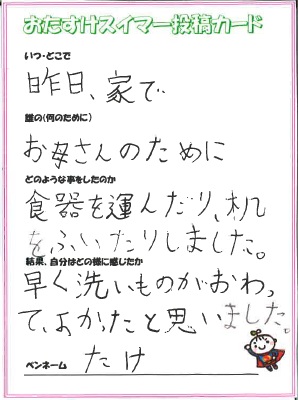 おたすけスイマー投稿カード
いつ・どこで
昨日、家で
誰の(何のために)
お母さんのために
どのような事をしたのか
食器を運んだり、机
をふいたりしました。
結果、自分はどの様に感じたか
早く洗いものがおわっ
て、よかったと思いました。
ペンネーム たけ